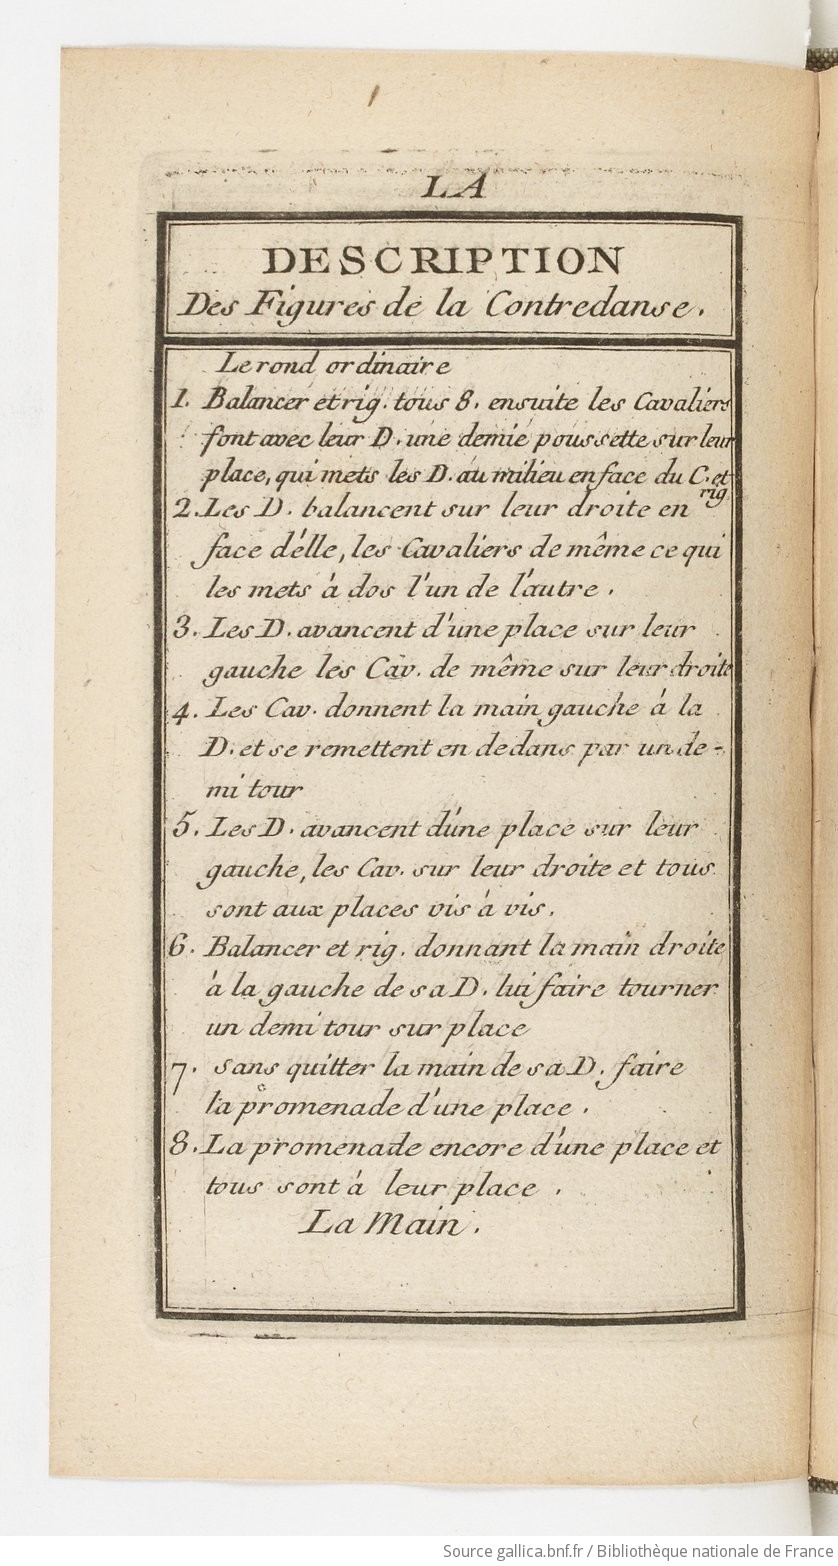 LA
DESCRIPTION
Des Figures de la Contredanse.
Le rond ordinaire
1. Balancer et rig. tous 8. ensuite les Cavaliers
font avec leur D. une demie poussette sur leur
place, qui mets les D. au milieu en face du C. et
rig.
2. Les D. balancent sur leur droite en
face d'élle, les Cavaliers de même ce qui
les mets à dos l'un de l'autre.
3. Les D. avancent d'une place sur leur
gauche les Cav. de même sur leur droite
4. Les Cav. donnent la main gauche à la
D. et se remettent en dedans par un de-
mi tour
5. Les D. avancent d'une place sur leur
gauche, les Cav. sur leur droite et tous
sont aux places vis à vis.
6. Balancer et rig. donnant la main droite
à la gauche de sa D. lui faire tourner
un demi tour sur place
7. sans quitter la main de sa D. faire
la promenade d'une place.
8. La promenade encore d'une place et
tous sont à leur place.
La Main.
Source gallica.bnf.fr / Bibliothèque nationale de France